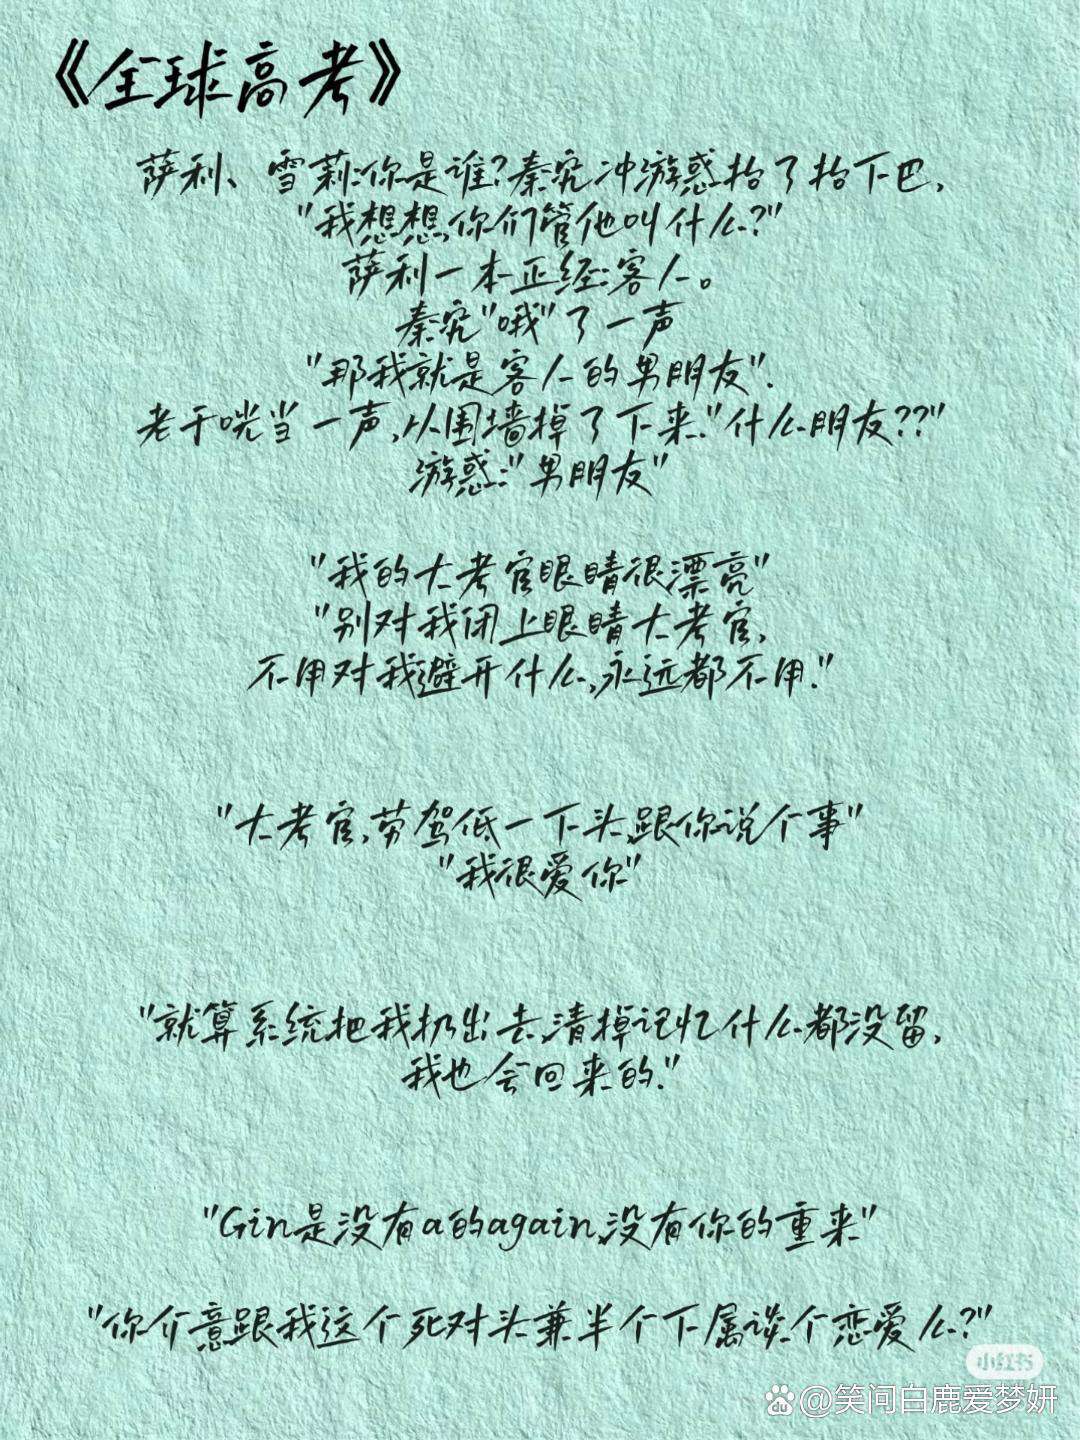 《全球高考》
萨利、雪莉:你是谁?秦究冲游惑抬了抬下巴,
"我想想,你们管他叫什么?"
萨利一本正经:客人。
秦究"哦"了一声
"那我就是客人的男朋友".
老于咣当一声,从围墙掉了下来."什么朋友??"
游惑:"男朋友"
"我的大考官眼睛很漂亮"
"别对我闭上眼睛大考官,
不用对我避开什么,永远都不用."
"大考官,劳驾低一下头,跟你说个事"
"我很爱你"
"就算系统把我扔出去,清掉记忆什么都没留,
我也会回来的."
"Gin是没有a的again,没有你的重来"
"你介意跟我这个死对头兼半个下属谈个恋爱么?"
小红书
Bai du @笑问白鹿爱梦妍